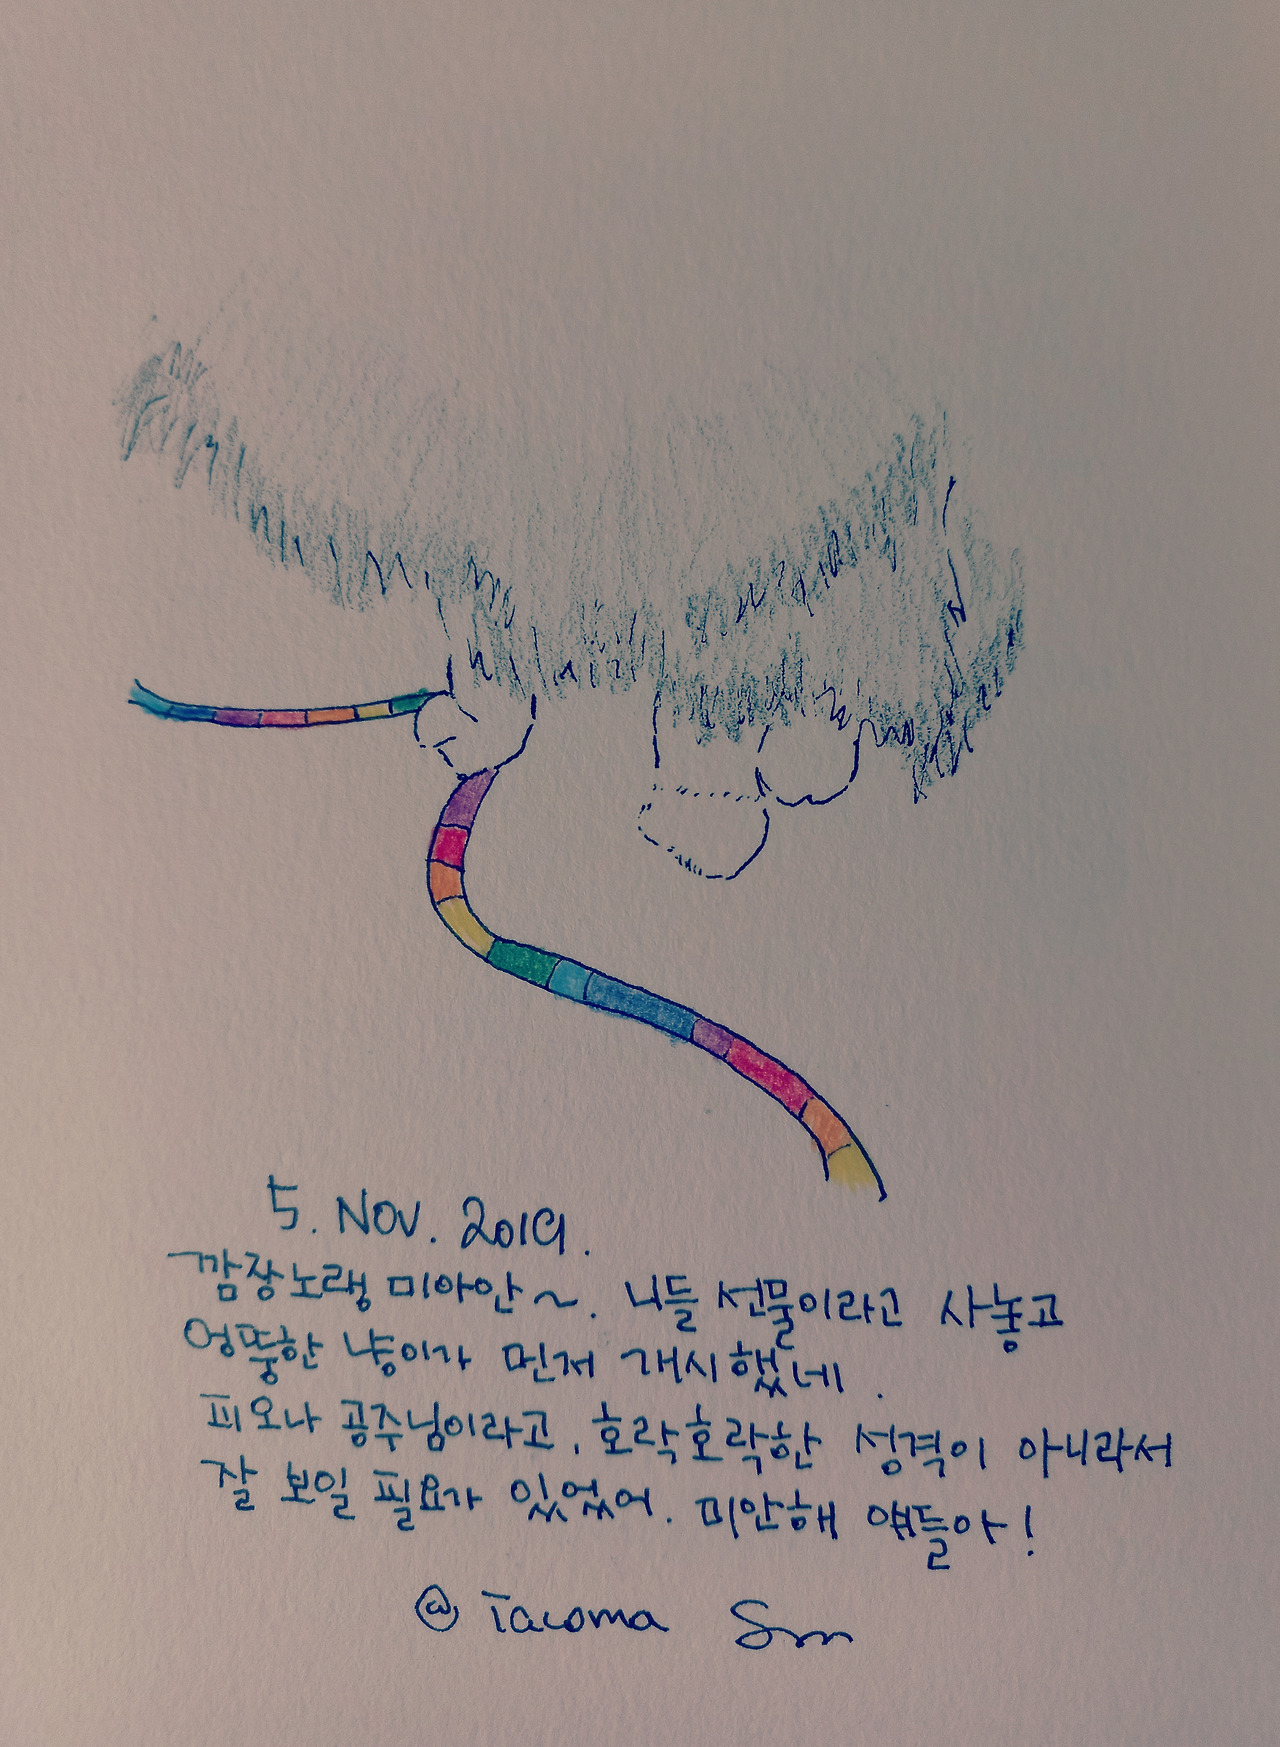 5. NOV. 2019.
깜장노랭 미아안~. 니들 선물이라고 사놓고
엉뚱한 냥이가 먼저 개시했네.
피오나 공주님이라고, 호락호락한 성격이 아니라서
잘 보일 필요가 있었어. 미안해 얘들아!
@ Tacoma